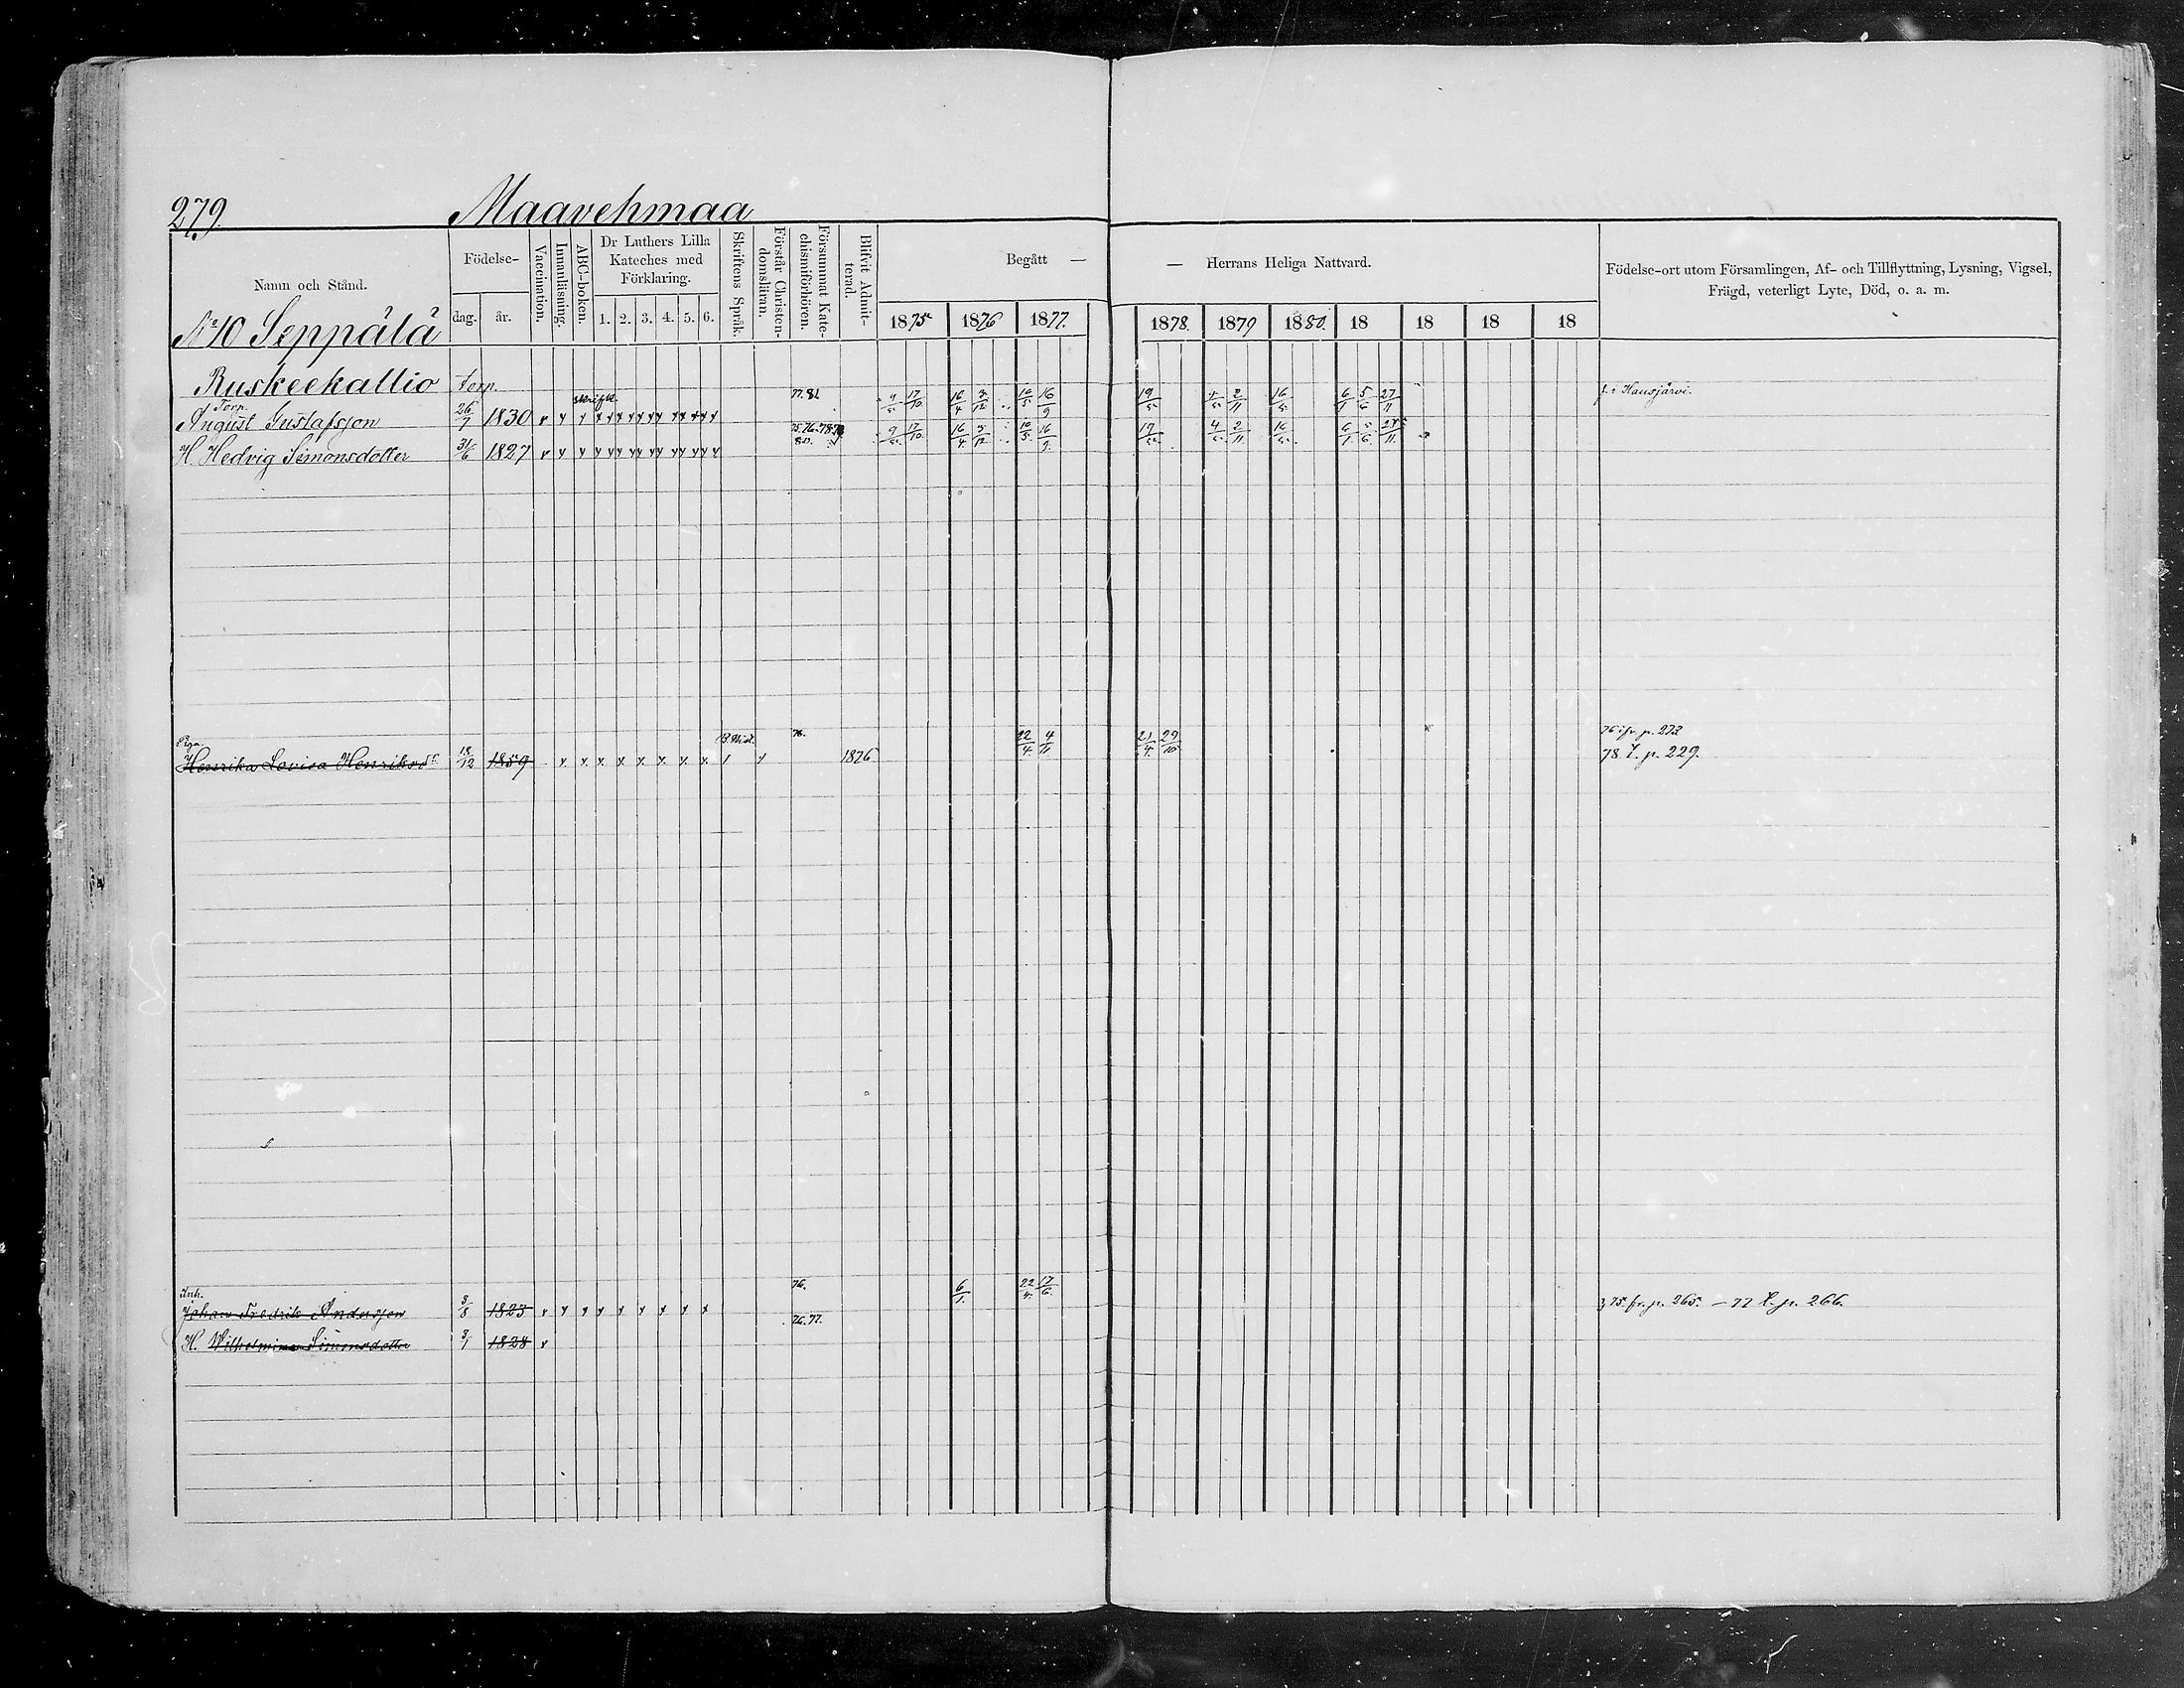 279. Maavehmaa
Namn och Stånd. Födelse- dag. år. Vaccination. Innanläsning. ABC-boken. Dr Luthers Lilla Kateches med Förklaring. 1. 2. 3. 4. 5. 6. Skriftens Språk. Förstår Christendomsläran. Försummat Katechismiförhören. Blifvit Admitterad. Begått — — Herrans Heliga Nattvard. Födelse-ort utom Församlingen, Af- och Tillflyttning, Lysning, Vigsel, Frägd, veterligt Lyte, Död, o. a. m.
No 10 Seppälä 1875 1876 1877. 1878. 1879 1880. 18 18 18 18
Ruskeekallio torp.
Torp. 77.81. 9/5 17/10 16/4 3/12 10/5 16/9 19/5 4/5 2/11 16/5 6/1 5/6 27/11 f. i Hausjärvi.
August Gustafsson 26/7 1830
9/5 17/10 16/4 3/12 10/5 16/9 19/5 4/5 2/11 16/5 6/1 5/6 27/11
H. Hedvig Simonsdotter 31/6 1827
Piga 76. 22/4 4/11 21/4 29/10 76 ifr. p. 273
Henrika Lovisa Henriksd. 18/12 1859 1876 78 t. p. 229.
Inh. 76. 6/1. 22/4. 17/6.
Johan Fredrik Andersson 3/8 1823 75. fr. p. 265. — 77 t. p. 266.
76.77.
H. Wilhelmina Simonsdotter 3/1 1828